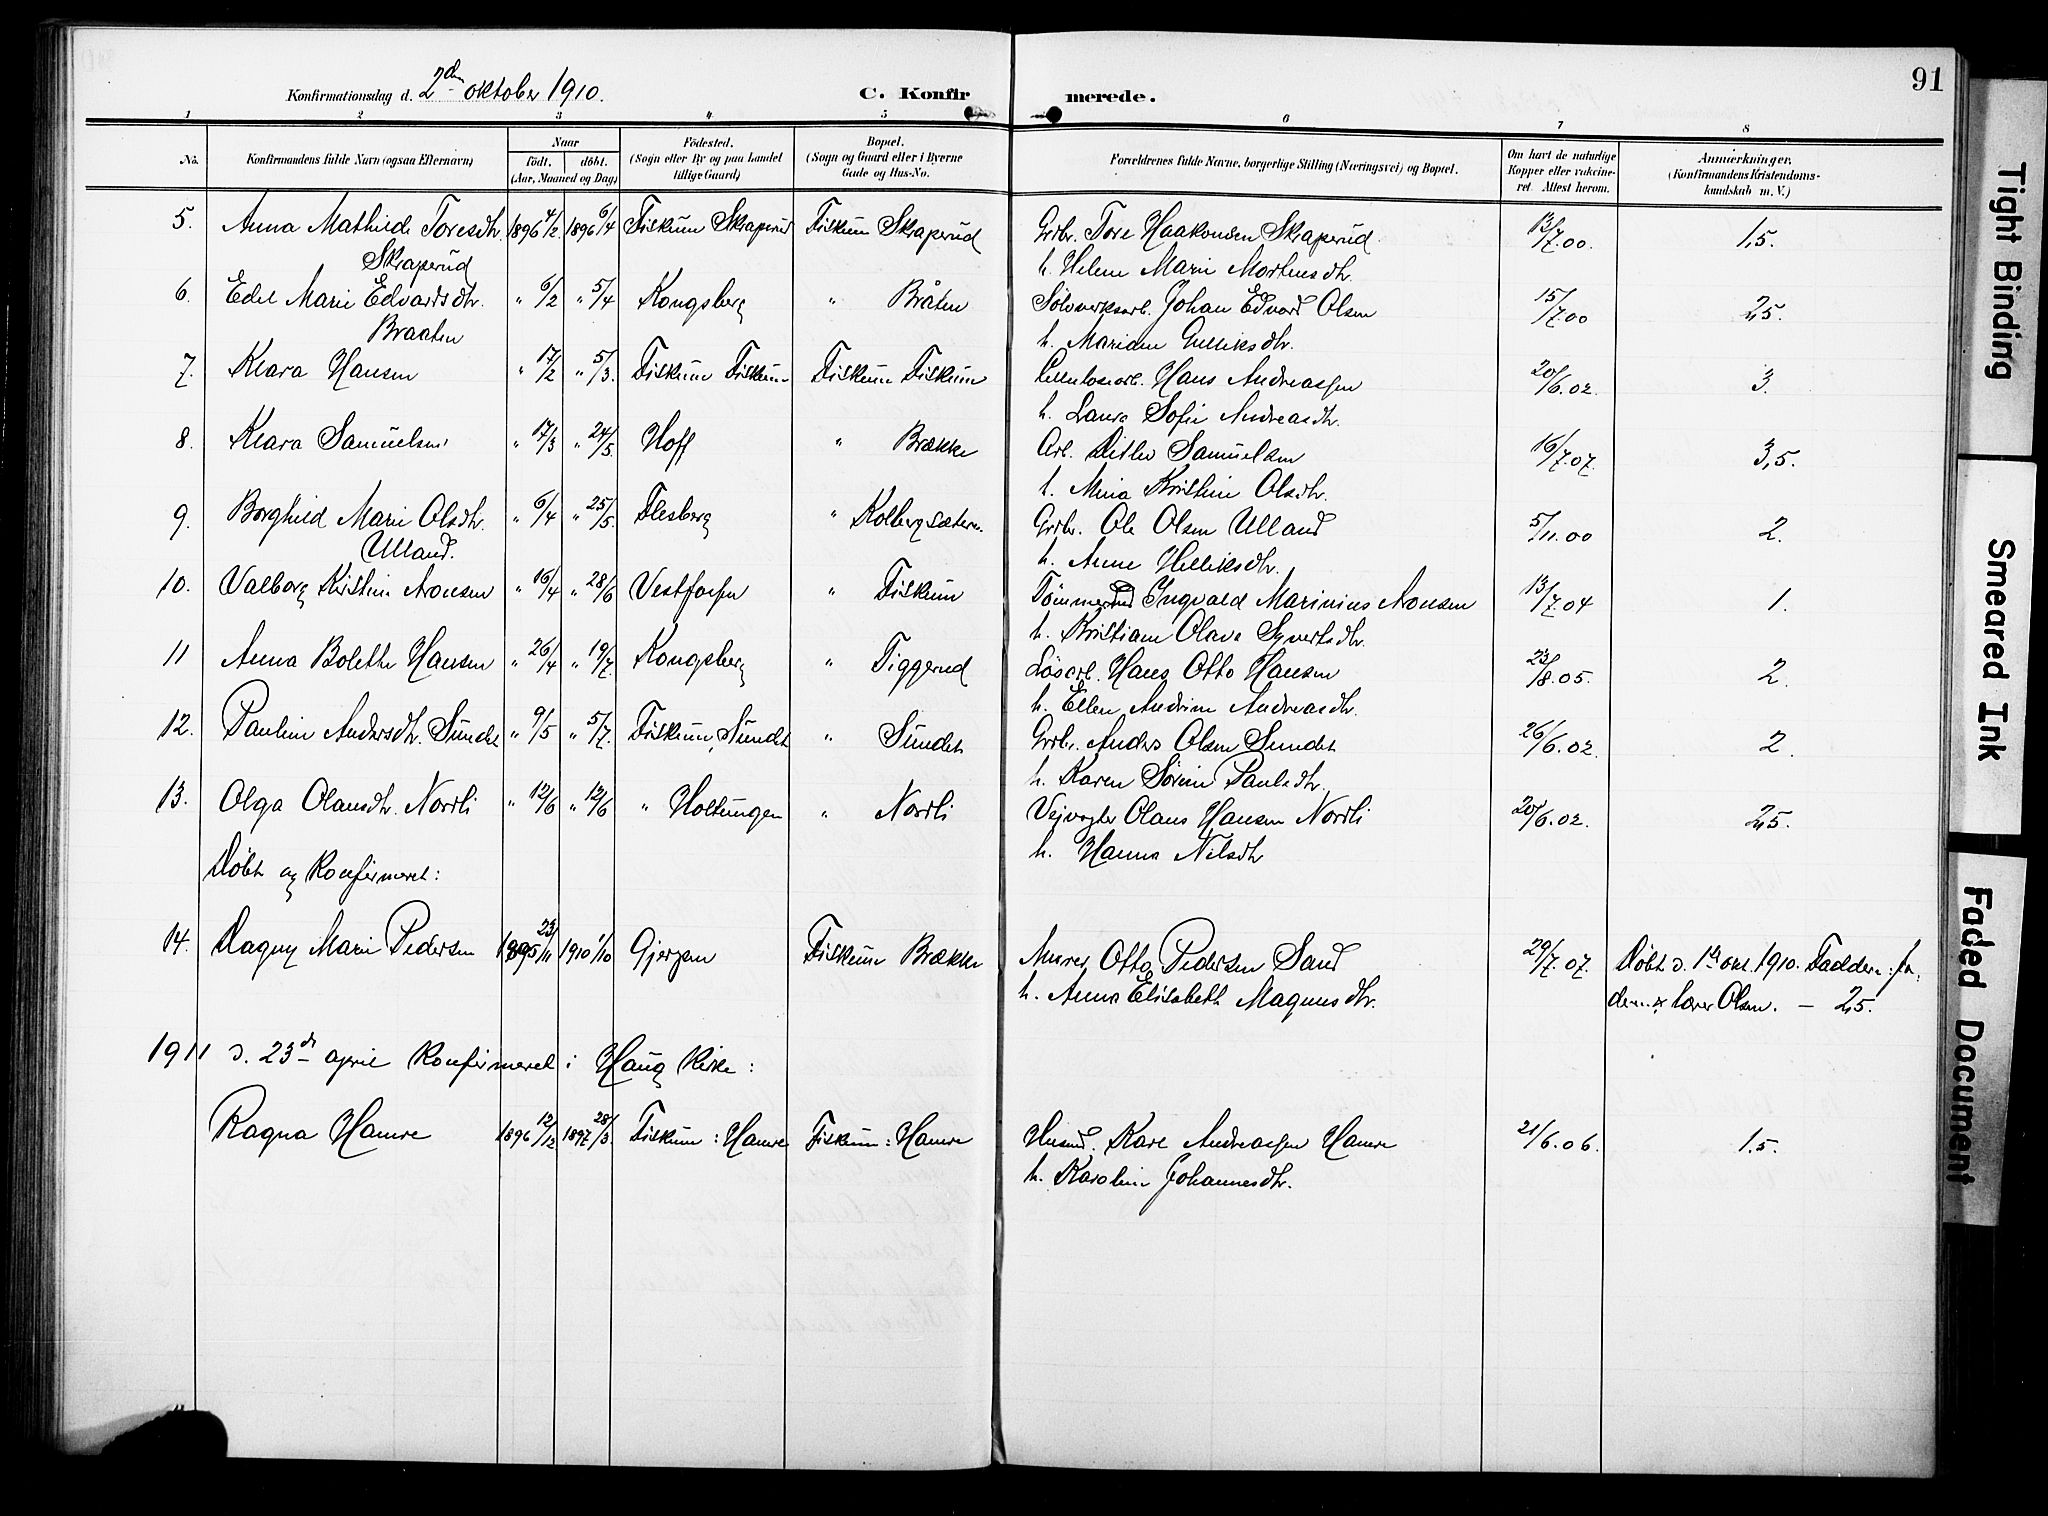 91
Konfirmationsdag d. 2den oktober 1910. C. Konfirmerede.
1 2 3 4 5 6 7 8
No. Konfirmandens fulde Navn (ogsaa Efternavn) Naar født. døbt. (Aar, Maaned og Dag) Fødested. (Sogn eller By og paa Landet tillige Gaard) Bopæl. (Sogn og Gaard eller i Byerne Gade og Hus-No. Forældrenes fulde Navne, borgerlige Stilling (Næringsvei) og Bopæl. Om havt de naturlige Kopper eller vaccineret. Attest herom. Anmærkninger. (Konfirmandens Kristendomskundskab m. V.)
5. Anna Mathilde Toresdtr. 1896 4/2 1896 6/4 Fiskum Skraperud Fiskum Skraperud Grbr. Tore Haakonsen Skraperud. 13/7.00. 1,5.
Skraperud h. Helene Marie Mortensdtr.
6. Edel Marie Edvardsdtr. " 6/2 " 5/4 Kongsberg " Bråten Sølvverksarb. Johan Edvard Olsen 15/7.00 2,5.
Braaten h. Mariane Gulliksdtr.
7. Klara Hansen " 17/2 " 5/3. Fiskum Fiskum Fiskum Fiskum Cellulosearb. Hans Andreassen 20/6.02. 3.
h. Laura Sofie Andreasdtr.
8. Klara Samuelsen " 17/3 " 24/5. Hoff " Brække Arb. Ditlev Samuelsen 16/7.07. 3,5.
h. Mina Kristine Olsdtr.
9. Borghild Marie Olsdtr. " 6/4 " 25/5. Flesberg " Kolbergsætern. Grbr. Ole Olsen Ulland 5/11.00 2.
Ulland. h. Anne Helliksdtr.
10. Valborg Kristine Aronsen " 16/4 " 28/6 Vestfossen " Fiskum Tømmermd Ingvald Marinius Aronsen 13/7.04 1.
h. Kristiane Olava Syvertsdtr.
11 Anna Bolette Hansen " 26/4 " 19/7. Kongsberg " Tiggerud Løsarb. Hans Otto Hansen 23/8.05. 2.
h. Ellen Andrine Andreasdtr.
12. Pauline Andersdtr. Sundet " 9/5 " 5/7. Fiskum, Sundet " Sundet Grbr. Anders Olsen Sundet 26/6.02. 2.
h. Karen Sørine Paulsdtr.
13. Olga Olausdtr. Nordli " 12/6 " 12/6 " Holtungen " Nordli Vejvogter Olaus Hansen Nordli 20/6.02. 2,5.
h. Hanna Nilsdtr
Døbt og konfirmeret:
14. Dagny Marie Pedersen 1895 23/11 1910 1/10 Gjerpen Fiskum Brække Murer Otto Pedersen Sand 29/7.07. Døbt d. 1ste okt. 1910. Faddere:
h. Anna Elisabeth Magnusdtr. lærer Olsen. – 2,5.
1911 d. 23de april konfirmeret i Haug kirke:
Ragna Hamre 1896 12/12 1897 28/3. Fiskum: Hamre Fiskum: Hamre Husmd. Karl Andreassen Hamre 21/6.06. 1.5.
h. Karoline Johannesdtr.
Tight Binding
Smeared Ink
Faded Document